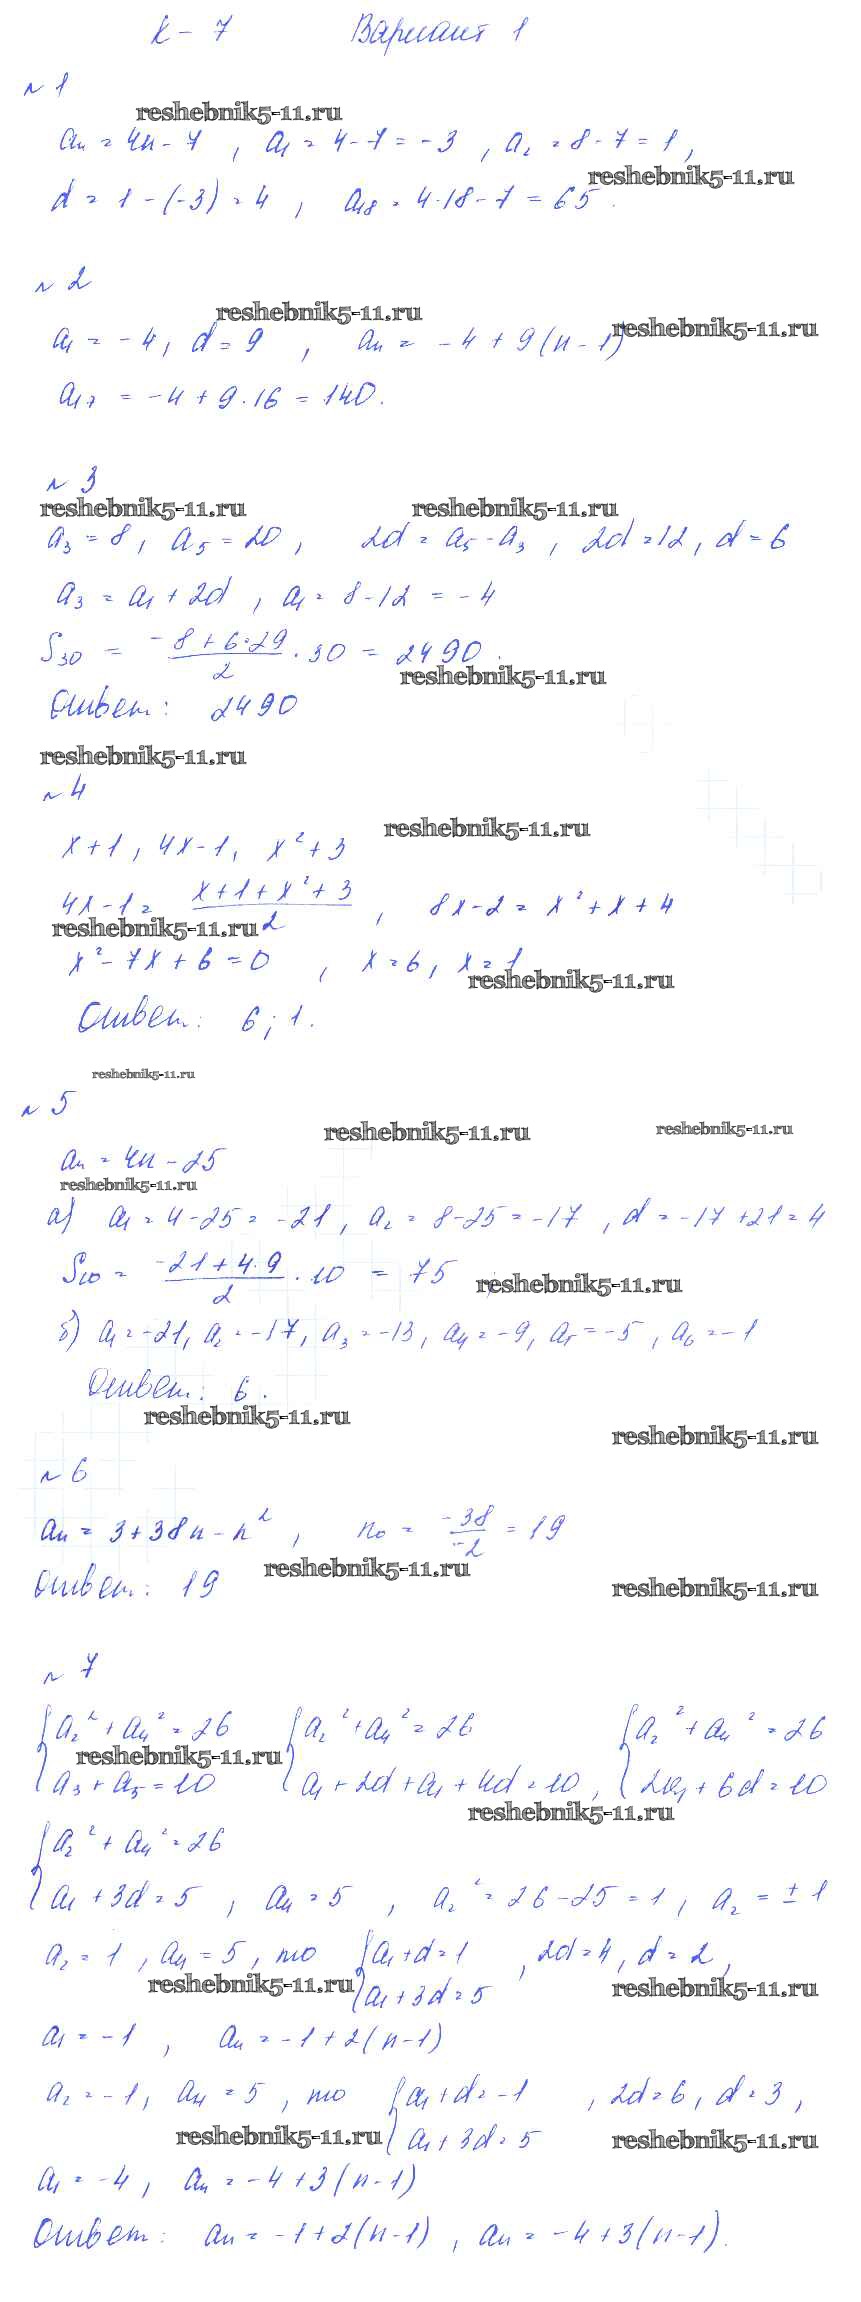 К-7 Вариант 1
№1
reshebnik5-11.ru
aₙ = 4n - 7, a₁ = 4 - 7 = -3, a₂ = 8 - 7 = 1,
reshebnik5-11.ru
d = 1 - (-3) = 4, a₁₈ = 4·18 - 7 = 65.
№2
reshebnik5-11.ru
reshebnik5-11.ru
a₁ = -4, d = 9, aₙ = -4 + 9(n-1)
a₁₇ = -4 + 9·16 = 140.
№3
reshebnik5-11.ru reshebnik5-11.ru
a₃ = 8, a₅ = 20, 2d = a₅ - a₃, 2d = 12, d = 6
a₃ = a₁ + 2d, a₁ = 8 - 12 = -4
S₃₀ = (-8 + 6·29)/2 · 30 = 2490.
reshebnik5-11.ru
Ответ: 2490
reshebnik5-11.ru
№4
reshebnik5-11.ru
x+1, 4x-1, x²+3
4x-1 = (x+1+x²+3)/2, 8x-2 = x²+x+4
reshebnik5-11.ru
x² - 7x + 6 = 0, x = 6, x = 1
reshebnik5-11.ru
Ответ: 6; 1.
reshebnik5-11.ru
№5
reshebnik5-11.ru reshebnik5-11.ru
aₙ = 4n - 25
reshebnik5-11.ru
а) a₁ = 4-25 = -21, a₂ = 8-25 = -17, d = -17+21 = 4
S₁₀ = (-21+4·9)/2 · 10 = 75
reshebnik5-11.ru
б) a₁ = -21, a₂ = -17, a₃ = -13, a₄ = -9, a₅ = -5, a₆ = -1
Ответ: 6.
reshebnik5-11.ru
reshebnik5-11.ru
№6
aₙ = 3+38n-n², n₀ = -38/-2 = 19
reshebnik5-11.ru
Ответ: 19
reshebnik5-11.ru
№7
{a₂²+a₄² = 26 {a₂²+a₄² = 26 {a₂²+a₄² = 26
reshebnik5-11.ru
a₃+a₅ = 10 a₁+2d+a₁+4d = 10, 2a₁+6d = 10
reshebnik5-11.ru
{a₂²+a₄² = 26
a₁+3d = 5, a₄ = 5, a₂² = 26-25 = 1, a₂ = ±1
a₂ = 1, a₄ = 5, то {a₁+d = 1, 2d = 4, d = 2,
reshebnik5-11.ru a₁+3d = 5 reshebnik5-11.ru
a₁ = -1, aₙ = -1+2(n-1)
a₂ = -1, a₄ = 5, то {a₁+d = -1, 2d = 6, d = 3,
reshebnik5-11.ru a₁+3d = 5 reshebnik5-11.ru
a₁ = -4, aₙ = -4+3(n-1)
Ответ: aₙ = -1+2(n-1), aₙ = -4+3(n-1).